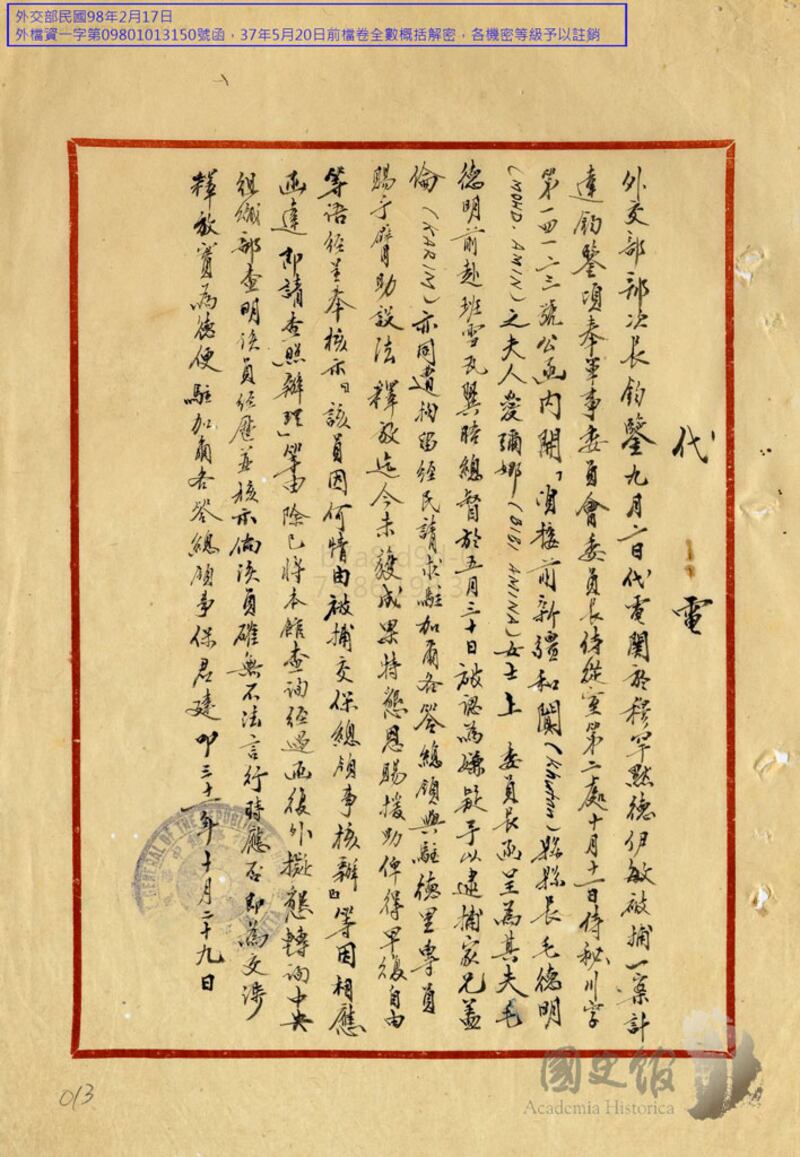 外交部民國98年2月17日
外檔資一字第09801013150號函，37年5月20日前檔卷全數概括解密，各機密等級予以註銷
代電
外交部部次長鈞鑒九月一日代電關於穆罕默德伊敏被捕一案計
達鈞鑒頃奉軍事委員會委員長侍從室第二處十月十一日侍秘川字
第一四一二三號公函內開「資接前新疆和闐(Khotan)縣縣長毛德明
(MOHD. AMIN)之夫人愛彌娜(BIBI AMINA)女士上 委員長函呈為其夫毛
德明前赴班雪瓦翼晤總督於五月三十日被認為嫌疑予以逮捕家兄蓋
倫(KARIM)亦同遭拘留經民請求駐加爾各答總領與駐德里專員
賜予臂助設法釋放迄今未獲成果特懇恩賜援助俾得早復自由
等語經呈奉核示『該員因何情由被捕交保總領事核辦』等因相應
函達即請查照辦理」等由除已將本館查詢經過函復外擬懇轉詢中央
組織部查明該員經歷並核示倘該員確無不法言行時應否即為交涉
釋放實為德便駐加爾各答總領事保君建叩三十一年十月二十九日
GENERAL OF THE REPUBLIC
013
國史館
Academia Historica